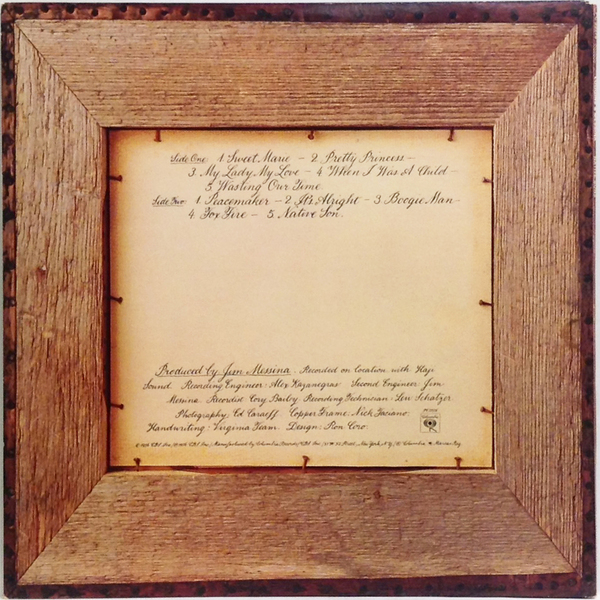 Side One 1 Sweet Marie – 2 Pretty Princess –
3 My Lady, My Love – 4 When I Was A Child –
5 Wasting Our Time
Side Two 1 Peacemaker – 2 It's Alright – 3 Boogie Man –
4 Fox Fire – 5 Native Son.
Produced by Jim Messina. Recorded on Location with Haji
Sound. Recording Engineer: Alex Kazanegras Second Engineer Jim
Messina. Recordist Cory Bailey Recording Technician: Len
Photography: Ed Caraeff Copper Frame: Nick Faciano.
Handwriting: Virginia Team. Design: Ron Coro.
Manufactured by Columbia Records/CBS Inc./51 W. 52 Street, New York, N.Y./